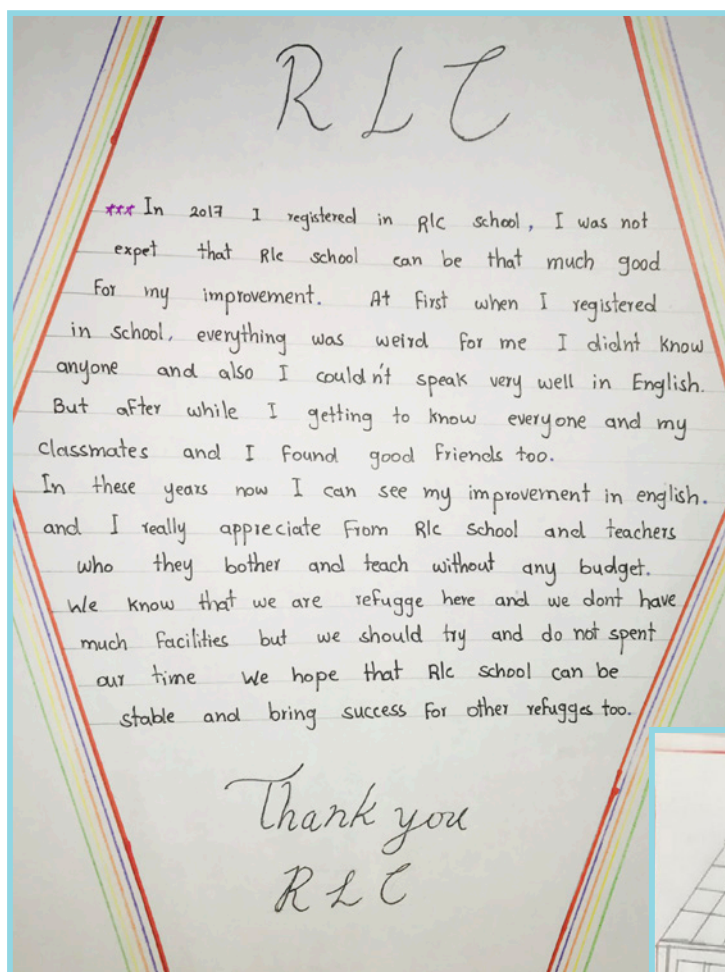 RLC
*** In 2017 I registered in Rlc school, I was not
expet that Rlc school can be that much good
For my improvement. At First when I registered
in school, everything was weird For me I didn't know
anyone and also I couldn't speak very well in English.
But aFter while I getting to know everyone and my
classmates and I Found good Friends too.
In these years now I can see my improvement in english.
and I really appreciate From Rlc school and teachers
who they bother and teach without any budget.
We know that we are refugge here and we dont have
much Facilities but we should try and do not spent
our time We hope that Rlc school can be
stable and bring success For other refugges too.
Thank you
RLC